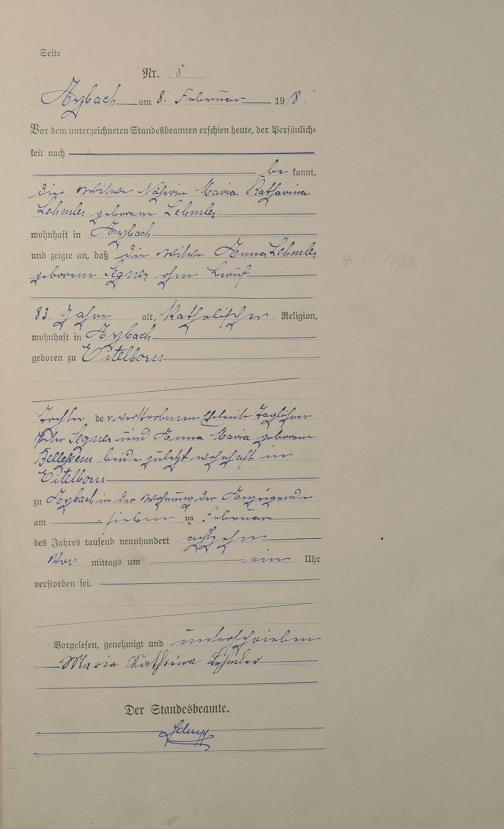 Seite
Nr. 8
Arzbach am 8. Februar 1918.
Vor dem unterzeichneten Standesbeamten erschien heute, der Persönlich-
keit nach
be kannt,
die Witwe Näherin Maria Katharina
Lehmler geborene Lehmler
wohnhaft in Arzbach
und zeigte an, daß die Witwe Anna Lehmler
geborene ohne Beruf
83 Jahre alt, Katholischer Religion,
wohnhaft in Arzbach
geboren zu Eitelborn
Tochter der verstorbenen Eheleute Taglöhner
Peter und Anna Maria geborene
beide zuletzt wohnhaft in
Eitelborn
zu Arzbach in der Wohnung der Anzeigende
am sieben ten Februar
des Jahres tausend neunhundert achtzehn
Vor mittags um ein Uhr
verstorben sei.
Vorgelesen, genehmigt und unterschrieben
Maria Katharina Lehmler
Der Standesbeamte.